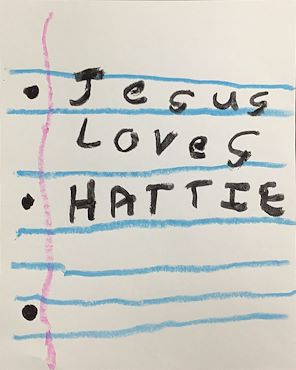 Jesus
Loves
HATTIE